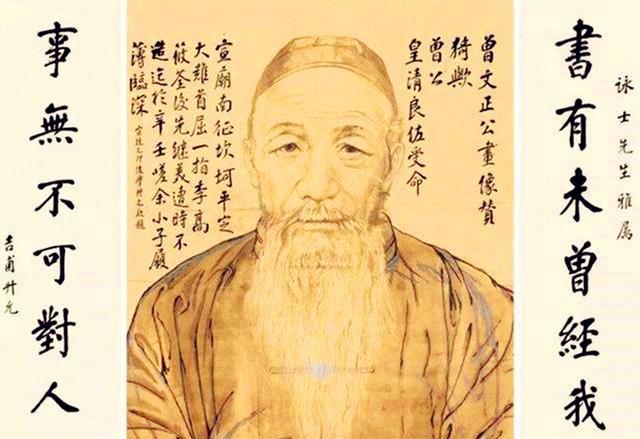 詠士先生雅屬
書有未曾經我
曾文正公畫像贊
猗歟
曾公
皇清良佐受命
宣廟南征坎坷平定
大難首屈一指李高
筱荃後先繼美遭時不
造迄於辛壬嗟余小子履
薄臨深
事無不可對人
吉甫升允